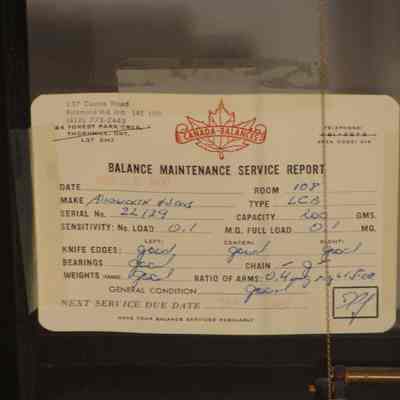 Road
Richmond Hill Ont.
(416) 773-2443
84 FOREST PARK CRES.
THORNHILL, ONT.
CANADA-BALANCES
TELEPHONE:
BALANCE MAINTENANCE SERVICE REPORT
DATE ROOM 108
MAKE & Sons TYPE LCB
SERIAL No. 22129 CAPACITY 200 GMS.
SENSITIVITY: No. LOAD 0.1 M.G. FULL LOAD 0.1 MG.
LEFT: CENTER: RIGHT:
KNIFE EDGES: good good good
BEARINGS good CHAIN
WEIGHTS good RATIO OF ARMS: 0.4
GENERAL CONDITION good
NEXT SERVICE DUE DATE
HAVE YOUR BALANCE SERVICED REGULARLY